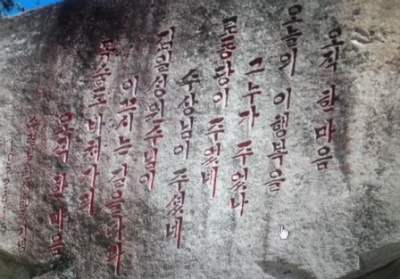 오직 한 마음
오늘의 이 행복을
그 누가 주었나
로동당이 주었네
수상님이 주셨네
김일성원수님이
이끄시는 길을 따라
목숨도 바쳐가리
오직 한 마음